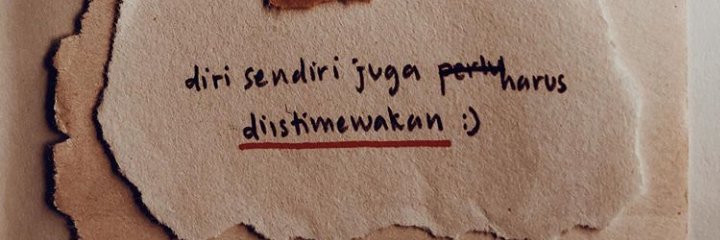 diri sendiri juga perlu harus
diistimewakan :)